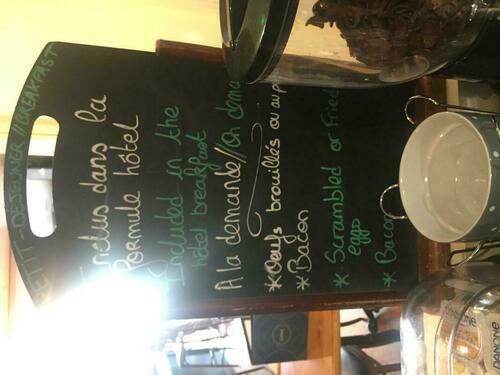 PETIT-DEJEUNER // BREAKFAST
Inclus dans la
formule hôtel
Included in the
hôtel breakfast
A la demande // On dema
* Oeufs brouillés ou au p
* Bacon
* Scrambled or Fried
eggs
* Bacon
DANONE